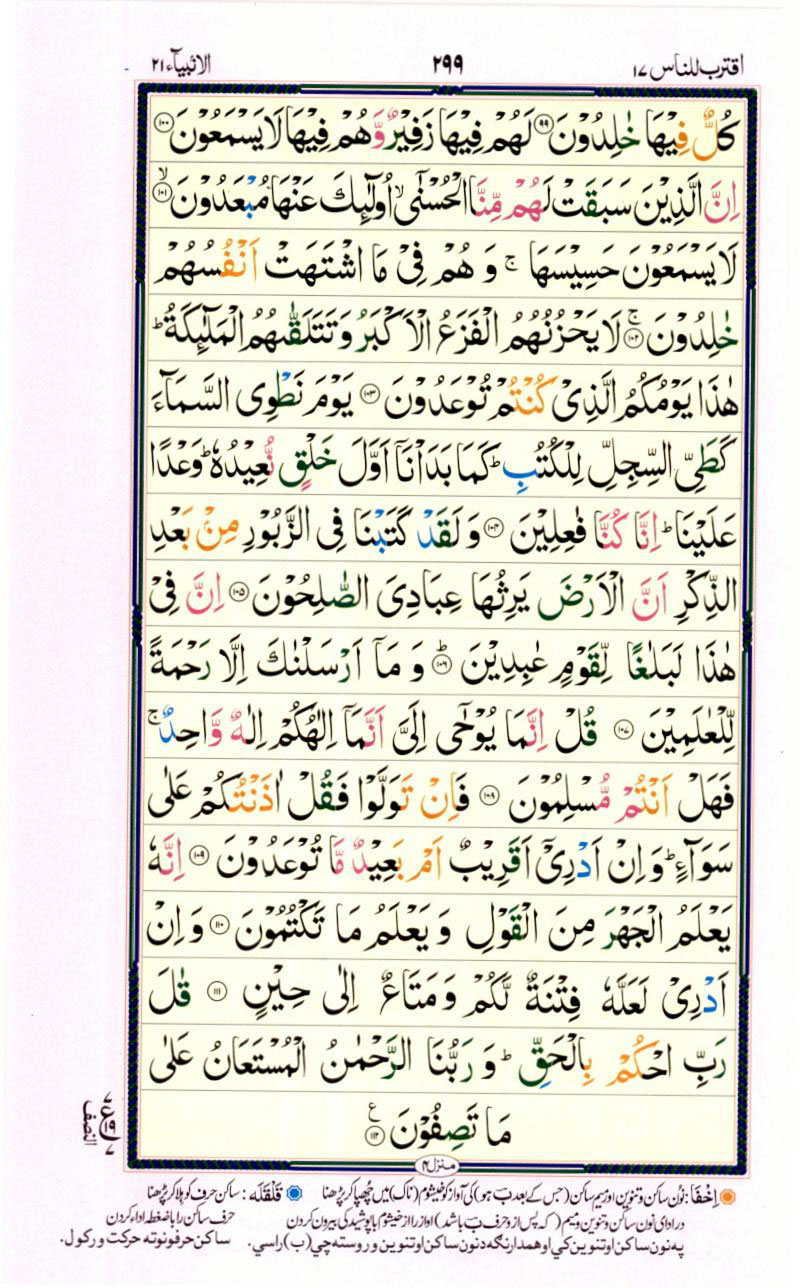 اقترب للناس ۱۷
۲۹۹
الانبیآء ۲۱
كُلٌّ فِيْهَا خٰلِدُوْنَ ﴿۹۹﴾ لَهُمْ فِيْهَا زَفِيْرٌ وَّهُمْ فِيْهَا لَا يَسْمَعُوْنَ ﴿۱۰۰﴾
اِنَّ الَّذِيْنَ سَبَقَتْ لَهُمْ مِّنَّا الْحُسْنٰٓى ۙ اُولٰٓئِكَ عَنْهَا مُبْعَدُوْنَ ﴿۱۰۱﴾ ۙ
لَا يَسْمَعُوْنَ حَسِيْسَهَا ۚ وَ هُمْ فِىْ مَا اشْتَهَتْ اَنْفُسُهُمْ
خٰلِدُوْنَ ﴿۱۰۲﴾ ۚ لَا يَحْزُنُهُمُ الْفَزَعُ الْاَكْبَرُ وَتَتَلَقّٰٮهُمُ الْمَلٰٓئِكَةُ ؕ
هٰذَا يَوْمُكُمُ الَّذِىْ كُنْتُمْ تُوْعَدُوْنَ ﴿۱۰۳﴾ يَوْمَ نَطْوِى السَّمَآءَ
كَطَىِّ السِّجِلِّ لِلْكُتُبِ ؕ كَمَا بَدَاْنَاۤ اَوَّلَ خَلْقٍ نُّعِيْدُهٗ ؕ وَعْدًا
عَلَيْنَا ؕ اِنَّا كُنَّا فٰعِلِيْنَ ﴿۱۰۴﴾ وَ لَقَدْ كَتَبْنَا فِى الزَّبُوْرِ مِنْ بَعْدِ
الذِّكْرِ اَنَّ الْاَرْضَ يَرِثُهَا عِبَادِىَ الصّٰلِحُوْنَ ﴿۱۰۵﴾ اِنَّ فِىْ
هٰذَا لَبَلٰغًا لِّقَوْمٍ عٰبِدِيْنَ ﴿۱۰۶﴾ ؕ وَ مَاۤ اَرْسَلْنٰكَ اِلَّا رَحْمَةً
لِّلْعٰلَمِيْنَ ﴿۱۰۷﴾ قُلْ اِنَّمَا يُوْحٰٓى اِلَىَّ اَنَّمَاۤ اِلٰهُكُمْ اِلٰهٌ وَّاحِدٌ ۚ
فَهَلْ اَنْتُمْ مُّسْلِمُوْنَ ﴿۱۰۸﴾ فَاِنْ تَوَلَّوْا فَقُلْ اٰذَنْتُكُمْ عَلٰى
سَوَآءٍ ؕ وَ اِنْ اَدْرِىْۤ اَقَرِيْبٌ اَمْ بَعِيْدٌ مَّا تُوْعَدُوْنَ ﴿۱۰۹﴾ اِنَّهٗ
يَعْلَمُ الْجَهْرَ مِنَ الْقَوْلِ وَ يَعْلَمُ مَا تَكْتُمُوْنَ ﴿۱۱۰﴾ وَ اِنْ
اَدْرِىْ لَعَلَّهٗ فِتْنَةٌ لَّكُمْ وَ مَتَاعٌ اِلٰى حِيْنٍ ﴿۱۱۱﴾ قٰلَ
رَبِّ احْكُمْ بِالْحَقِّ ؕ وَ رَبُّنَا الرَّحْمٰنُ الْمُسْتَعَانُ عَلٰى
مَا تَصِفُوْنَ ﴿۱۱۲﴾ ع
ع ۱۹
النصف
منزل ۴
اِخْفَا: نون ساکن و تنوین اور میم ساکن (جس کے بعد ب ہو) کی آواز کو خیشوم (ناک) میں چھپا کر پڑھنا
قَلْقَلَه: ساکن حرف کو ہلا کر پڑھنا
در ادای نون ساکن و تنوین و میم (که پس از و حرف ب باشد) آواز را از خیشوم با پوشیدگی بیرون کردن
حرف ساکن را با ضغطه اداء کردن
په نون ساکن او تنوین کي او همدارنگه د نون ساکن او تنوین وروسته چي (ب) راسي.
ساکن حرفونو ته حرکت ورکول.